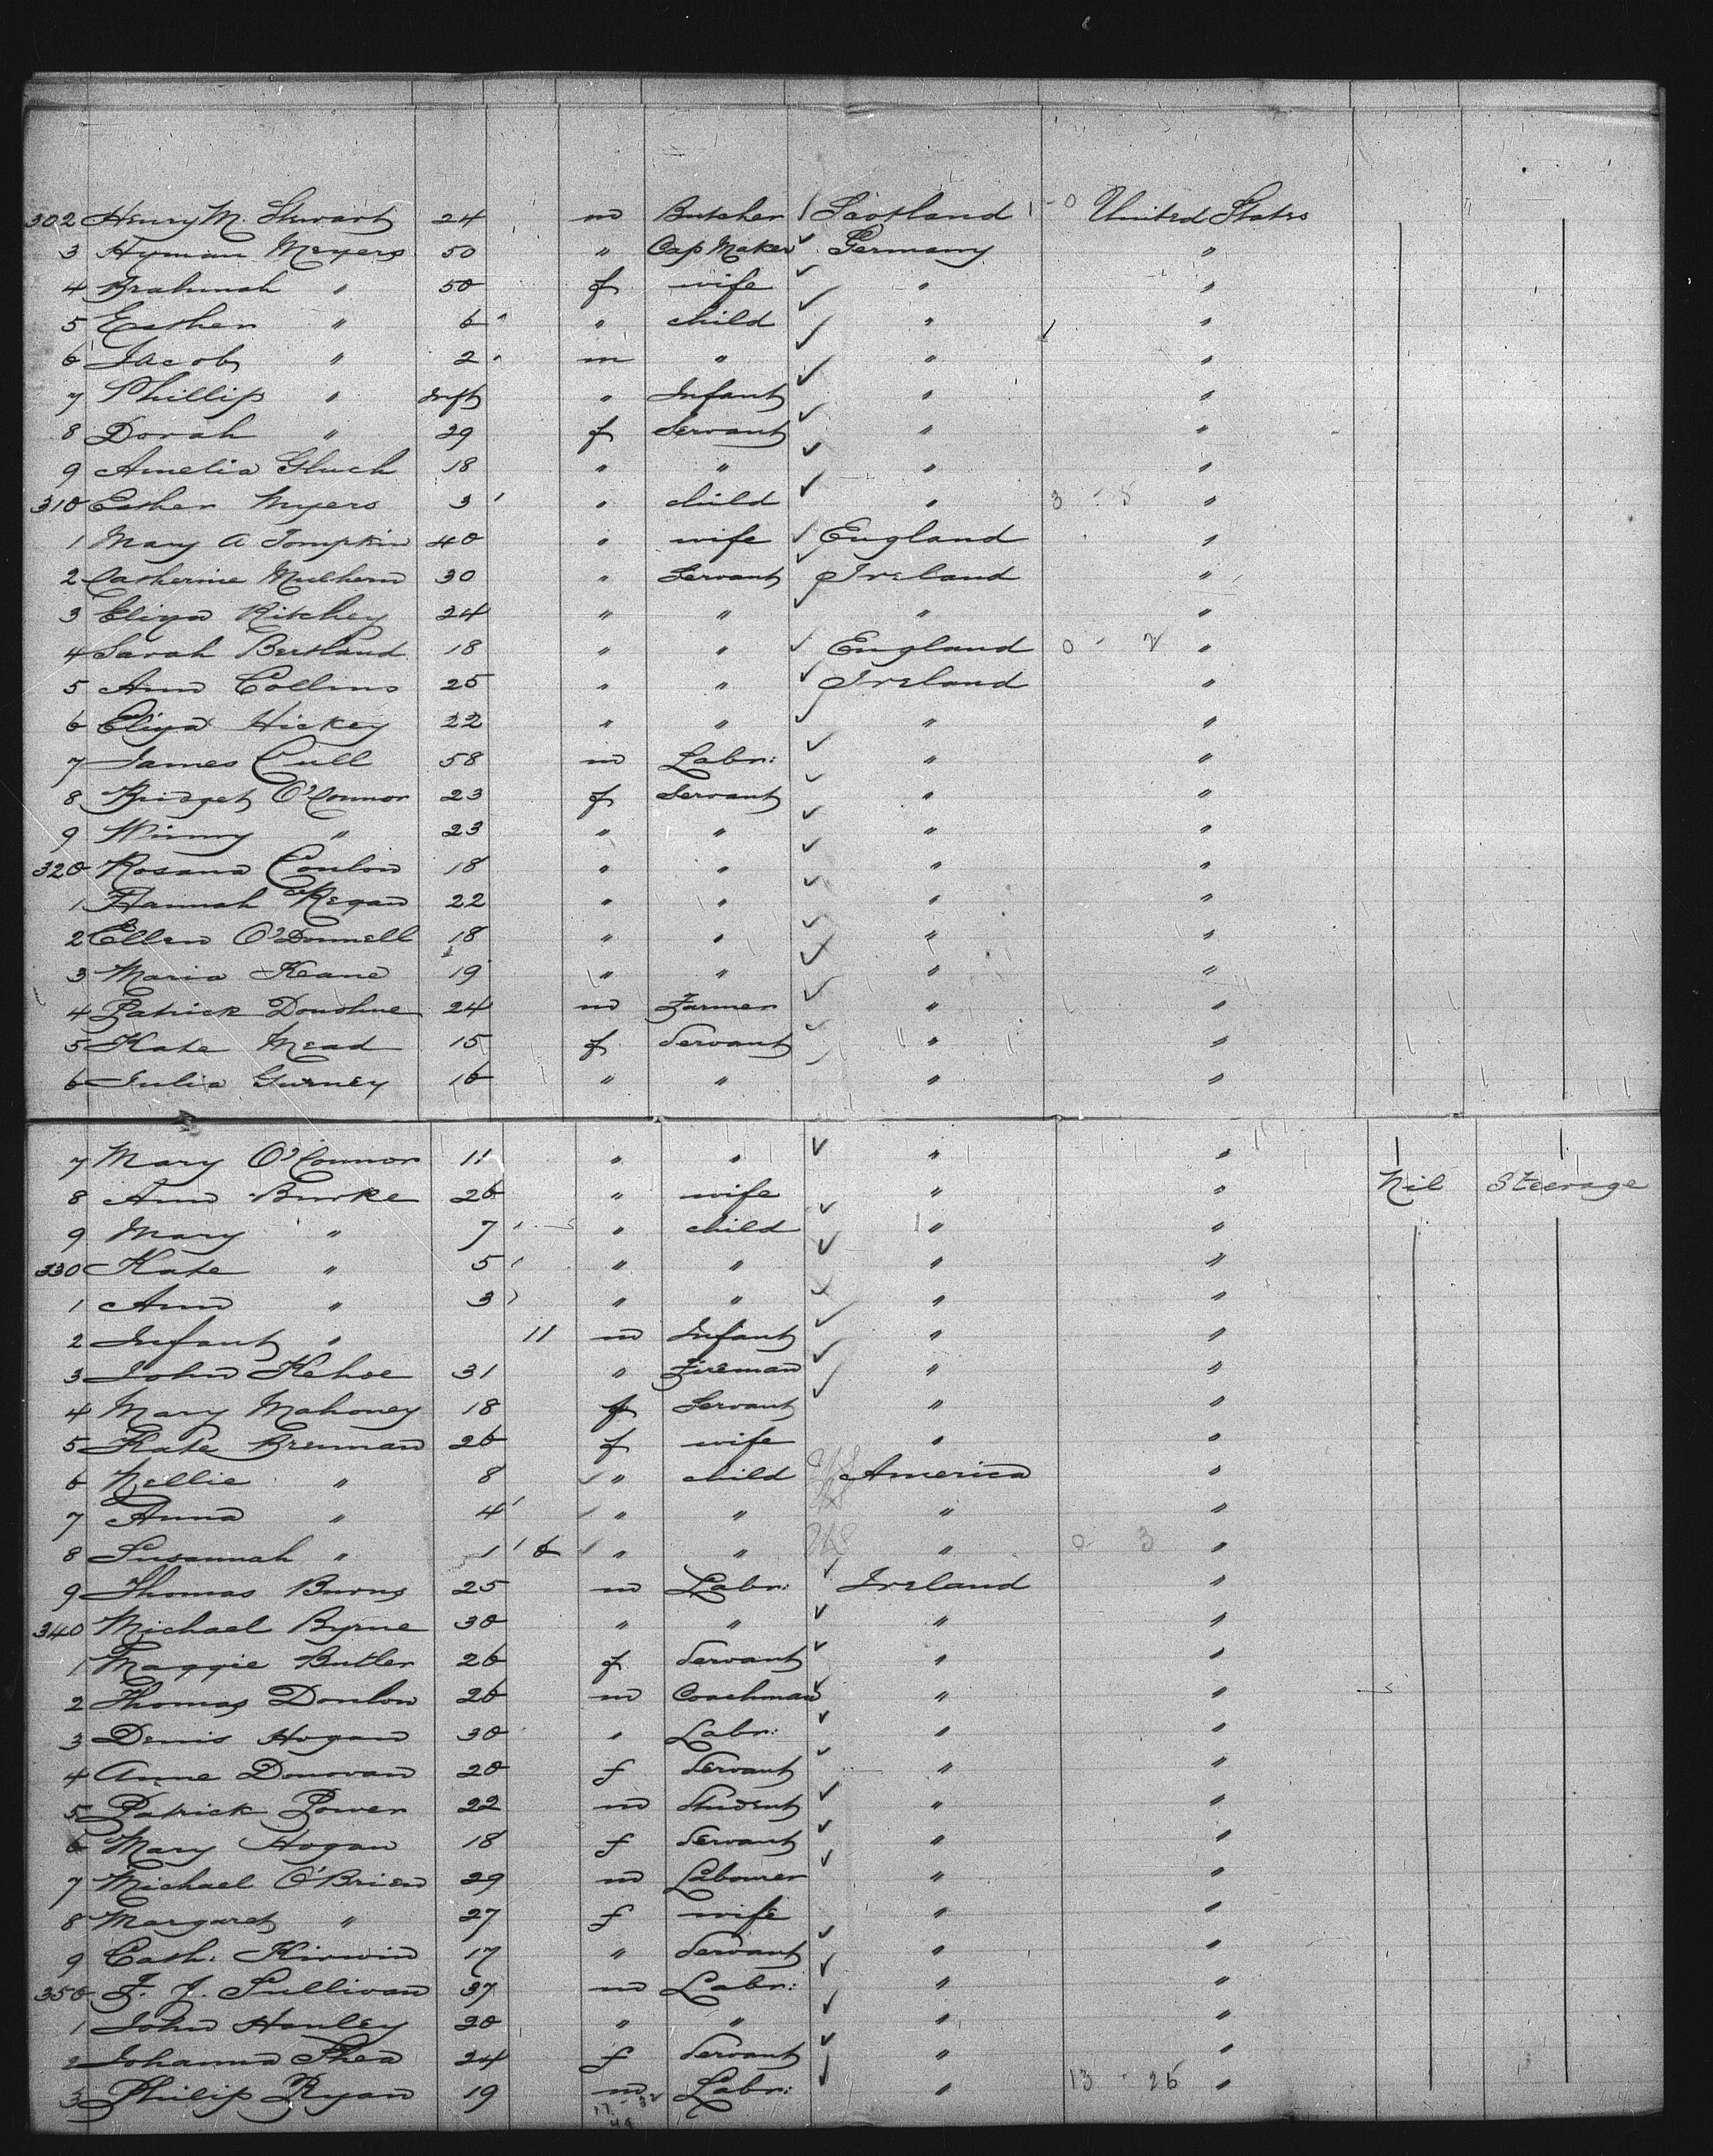 302 Henry M. Stewart 24 m Butcher Scotland United States
3 Hyman Meyers 50 " Cap Maker Germany "
4 " 50 f wife " "
5 Esther " 6 " child " "
6 Jacob " 2 m " " "
7 Phillip " Inft " Infant " "
8 Dorah " 29 f Servant " "
9 Amelia Gluck 18 " " " "
310 Esther Myers 3 " child " 3 - 5 "
1 Mary A Tompkin 40 " wife England "
2 Catherine Mulhern 30 " Servant Ireland "
3 Eliza Ritchey 24 " " " "
4 Sarah 18 " " England 0 - 2 "
5 Ann Collins 25 " " Ireland "
6 Eliza Hickey 22 " " " "
7 James Cull 58 m Labr: " "
8 Bridget O'Connor 23 f Servant " "
9 Winny " 23 " " " "
320 Rosana Conlon 18 " " " "
1 Hannah Regan 22 " " " "
2 Ellen O'Donnell 18 " " " "
3 Maria Keane 19 " " " "
4 Patrick Donohue 24 m Farmer " "
5 Kate Mead 15 f Servant " "
6 Julia Gurney 16 " " " "
7 Mary O'Connor 11 " " " "
8 Ann Burke 26 " wife " " Nil Steerage
9 Mary " 7 " child " "
330 Kate " 5 " " " "
1 Ann " 3 " " " "
2 Infant " 11 m Infant " "
3 John Kehoe 31 " Fireman " "
4 Mary Mahoney 18 f Servant " "
5 Kate Brennan 26 f wife " "
6 Nellie " 8 " child America "
7 Anna " 4 " " " "
8 Susannah " 1 6 " " US " 0 3 "
9 Thomas Burns 25 m Labr: Ireland "
340 Michael Byrne 30 " " " "
1 Maggie Butler 26 f Servant " "
2 Thomas Donlon 26 m Coachman " "
3 Denis Hogan 30 " Labr: " "
4 Anne Donovan 20 f Servant " "
5 Patrick Power 22 m Student " "
6 Mary Hogan 18 f Servant " "
7 Michael O'Brien 29 m Labourer " "
8 Margaret " 27 f wife " "
9 Cath: Kirwin 17 " Servant " "
350 F. J. Sullivan 37 m Labr: " "
1 John Hanley 20 " " " "
2 Johanna Shea 24 f Servant " "
3 Philip Ryan 19 m Labr: " 13 - 26 "